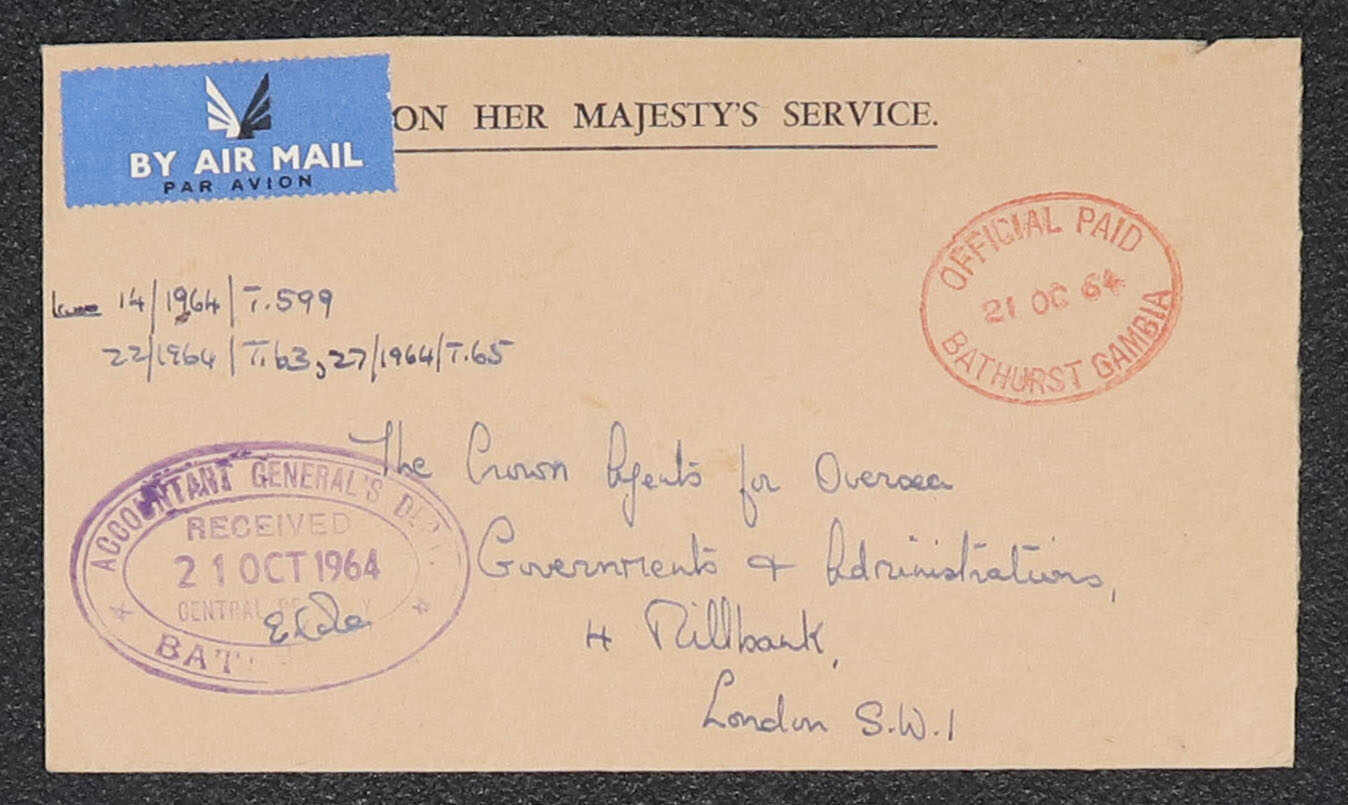 BY AIR MAIL
PAR AVION
ON HER MAJESTY'S SERVICE.
OFFICIAL PAID
21 OC 64
BATHURST GAMBIA
14/1964/T.599
22/1964/T.63, 27/1964/T.65
The Crown Agents for Oversea
Governments & Administrations,
4 Millbank,
London S.W.1
ACCOUNTANT GENERAL'S
RECEIVED
21 OCT 1964
CENTRAL
BAT